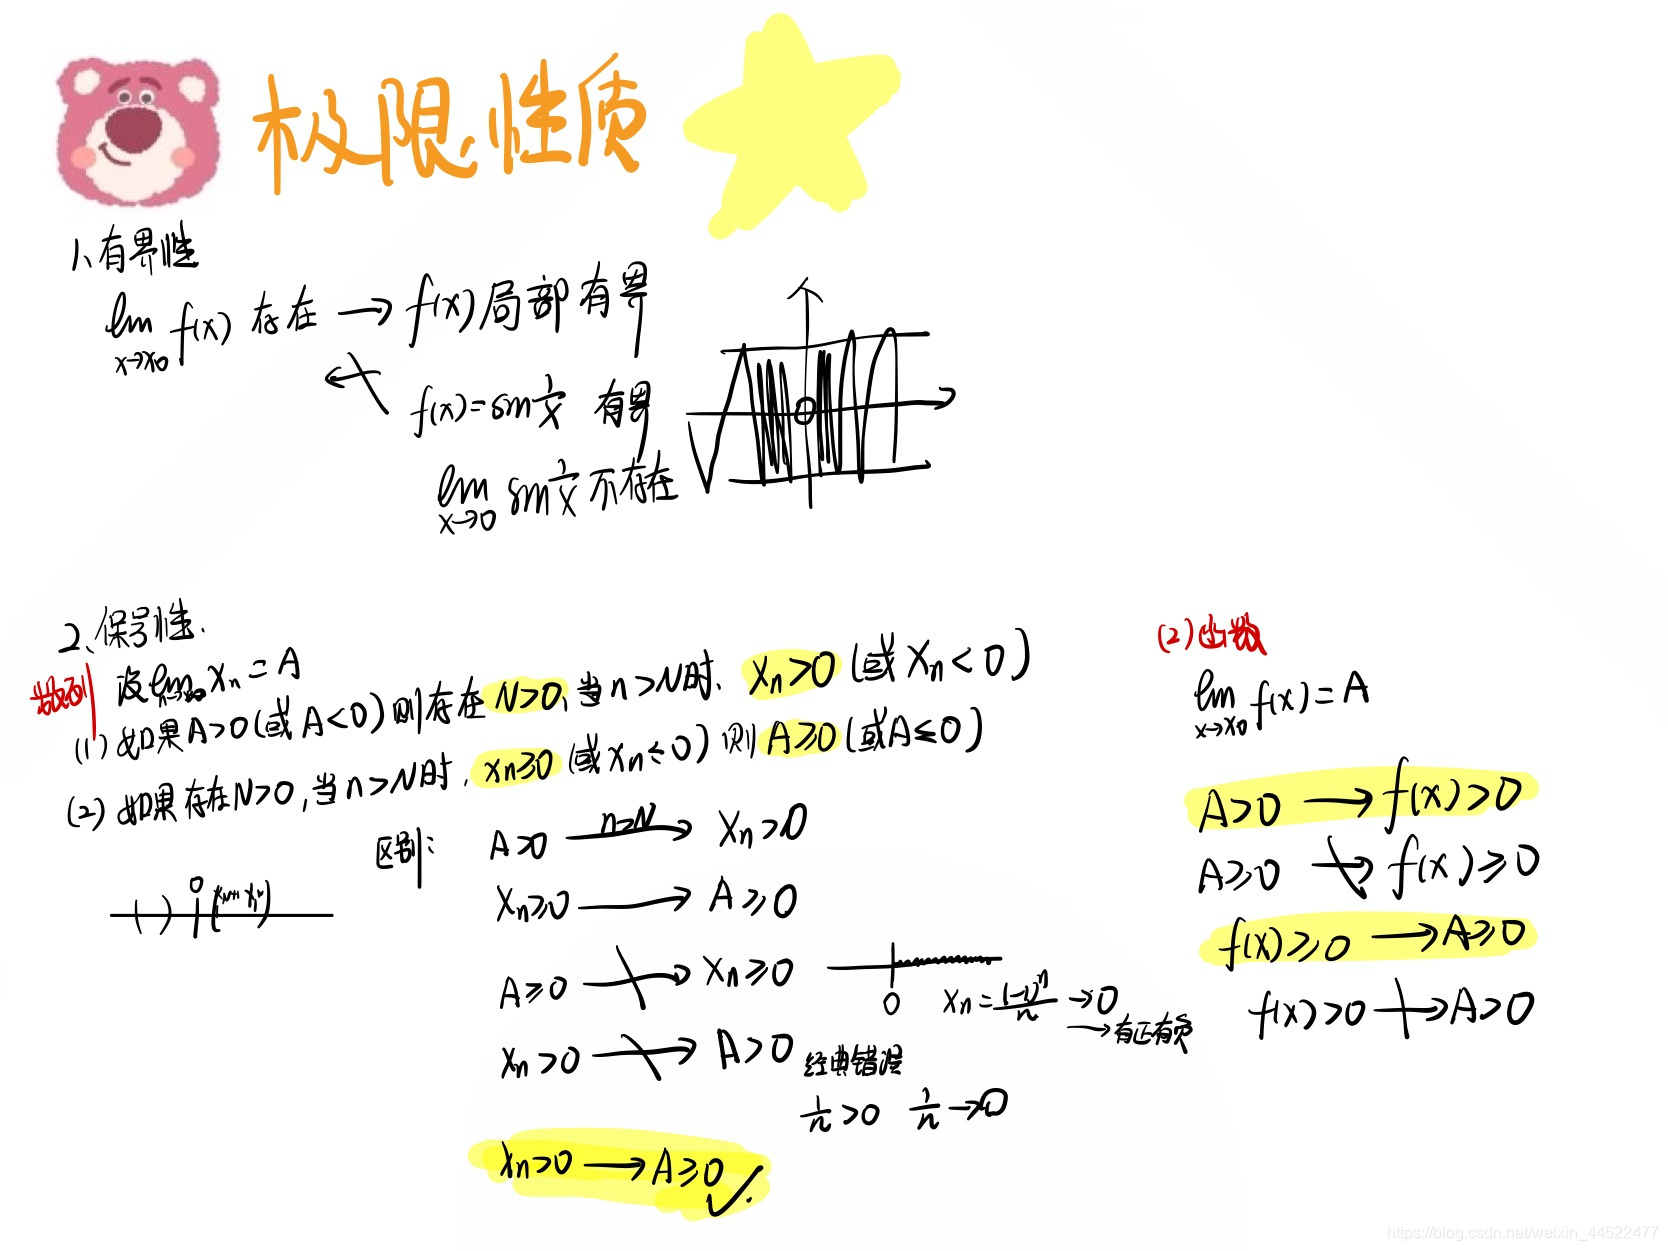 极限性质
1、有界性
lim x→x0 f(x) 存在 → f(x)局部有界
f(x)=sin 1/x 有界
lim x→0 sin 1/x 不存在
0
2、保号性.
数列
设lim n→∞ Xn = A
(1) 如果A>0(或A<0)则存在N>0,当n>N时, Xn>0(或Xn<0)
(2) 如果存在N>0,当n>N时, Xn≥0(或Xn≤0)则A≥0(或A≤0)
区别:
A>0 n>N → Xn>0
Xn≥0 → A≥0
A≥0 ↛ Xn≥0
0 Xn=(-1)^n/n → 0
→有正有负
Xn>0 ↛ A>0 经典错误
1/n>0 1/n→0
Xn>0 → A≥0 ✓
0
(2)函数
lim x→x0 f(x)=A
A>0 → f(x)>0
A≥0 ↛ f(x)≥0
f(x)≥0 → A≥0
f(x)>0 ↛ A>0
https://blog.csdn.net/weixin_44522477